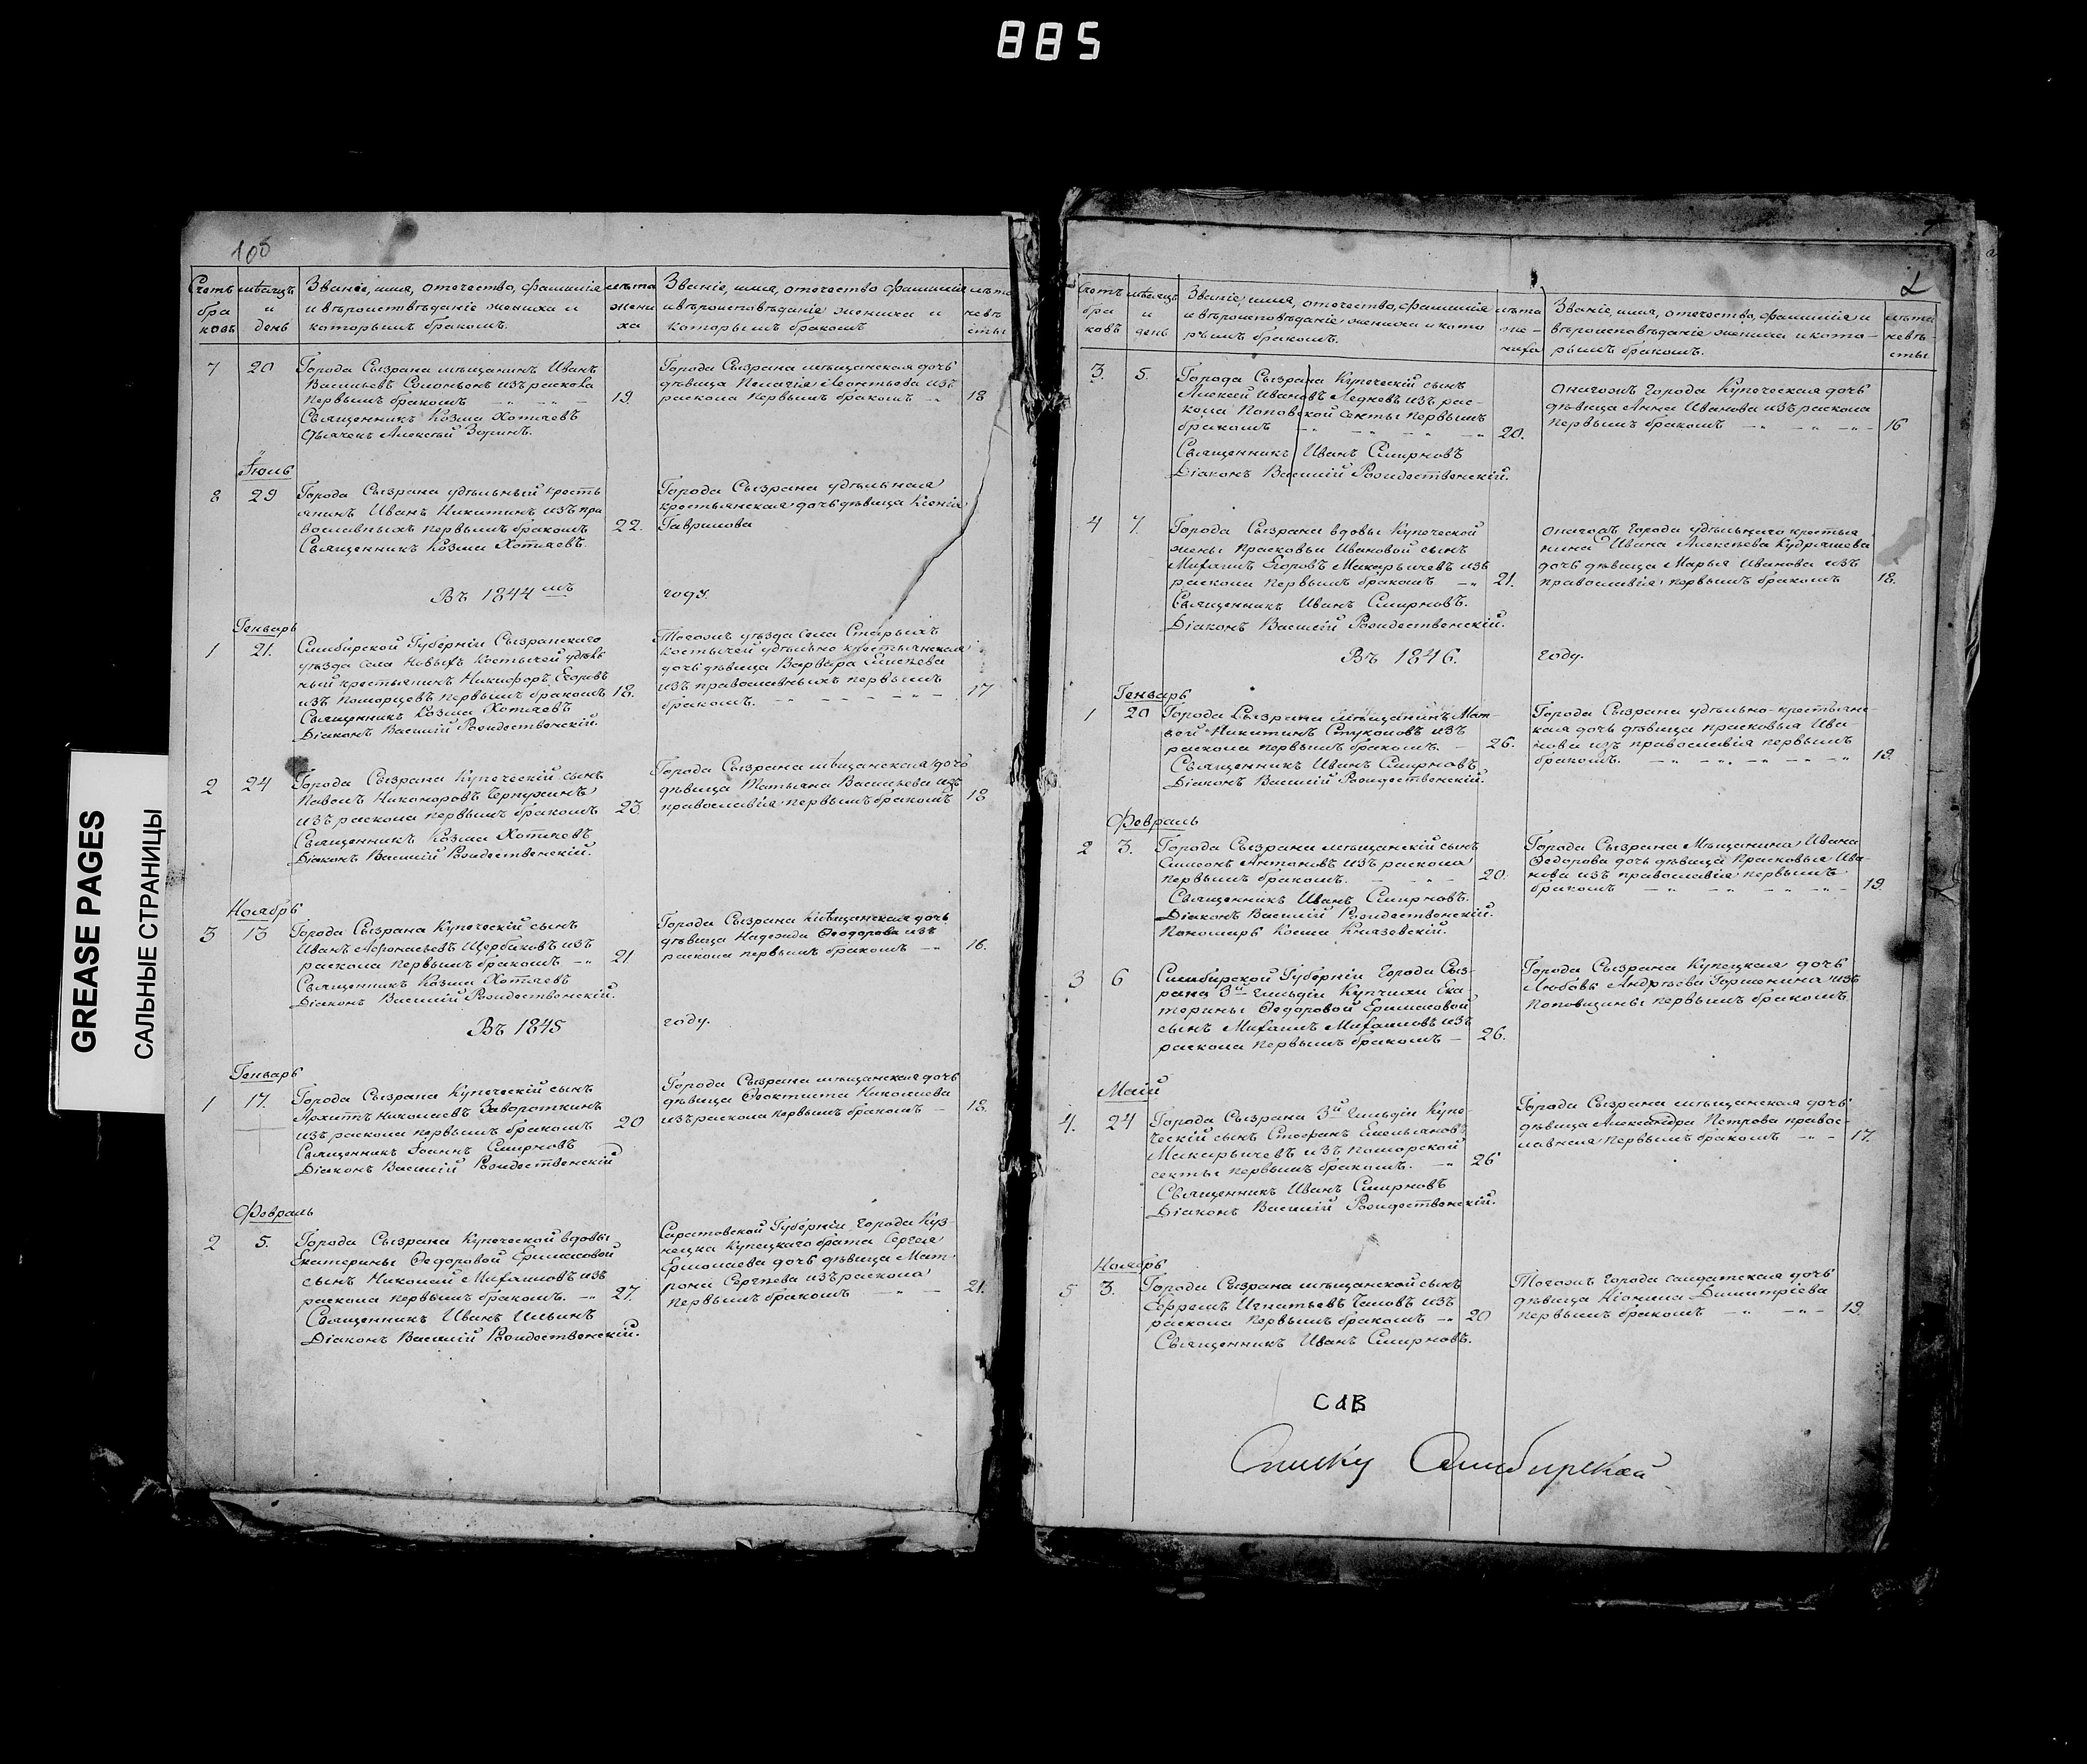 885
GREASE PAGES
САЛЬНЫЕ СТРАНИЦЫ
105
Счетъ бра ковъ
мѣсяцъ и день
Званіе, имя, отечество, фамилія
и вѣроисповѣданіе жениха и
которымъ бракомъ.
лѣта жени ха
Званіе, имя, отечество фамилія
и вѣроисповѣданіе жениха и
которымъ бракомъ
лѣта невѣ сты
7 20
Города Сызрана мѣщанинъ Иванъ
Васильевъ из раскола
первымъ бракомъ 19.
Священникъ Козма Хотяевъ
Дьячекъ Алексѣй Зоринъ.
Города Сызрана мѣщанская дочь
дѣвица Пелагія Леонтьева изъ
раскола первымъ бракомъ 18
Іюль
8 29
Города Сызрана удѣльный кресть
янинъ Иванъ Никитинъ изъ пра
вославныхъ первымъ бракомъ 22.
Священникъ Козма Хотяевъ.
Города Сызрана удѣльная
крестьянская дочь дѣвица Ксенія
Гаврилова
Въ 1844мъ году.
Генварь
1 21.
Симбирской Губерніи Сызранскаго
уѣзда села Новыхъ Костычей удѣль
ный крестьянинъ Никифоръ Егоровъ
изъ поморцевъ первымъ бракомъ 18.
Священникъ Козма Хотяевъ
Діаконъ Василій Рождественскій.
Тогожъ уѣзда села Старыхъ
Костычей удѣльно крестьянская
дочь дѣвица Варвара
изъ православныхъ первымъ
бракомъ. 17
2 24
Города Сызрана Купеческій сынъ
Павелъ Никоноровъ Чернухинъ
изъ раскола первымъ бракомъ 23.
Священникъ Козма Хотяевъ
Діаконъ Василій Рождественскій.
Города Сызрана мѣщанская дочь
дѣвица Татьяна Васильева изъ
православія первымъ бракомъ 18
Ноябрь
3 13
Города Сызрана Купеческій сынъ
Иванъ Афонасьевъ Щербаковъ изъ
раскола первымъ бракомъ 21
Священникъ Козма Хотяевъ
Діаконъ Василій Рождественскій.
Города Сызрана мѣщанская дочь
дѣвица Надежда Ѳеодорова изъ
раскола первымъ бракомъ 16.
Въ 1845 году.
Генварь
1 17.
Города Сызрана Купеческій сынъ
Архипъ Николаевъ Завороткинъ
изъ раскола первымъ бракомъ 20
Священникъ Іоаннъ Смирновъ
Діаконъ Василій Рождественскій
Города Сызрана мѣщанская дочь
дѣвица Ѳеоктиста Николаева
изъ раскола первымъ бракомъ 18.
Февраль
2 5.
Города Сызрана Купеческой вдовы
Екатерины Ѳедоровой Ермасовой
сынъ Николай Михаиловъ изъ
раскола первымъ бракомъ. 27.
Священникъ Иванъ Ильинъ
Діаконъ Василій Рождественскій.
Саратовской Губерніи, города Куз-
нецка Купецкаго брата Сергея
Ермолаева дочь дѣвица Мат-
рона Сергѣева изъ раскола
первымъ бракомъ 21.
Счетъ бра ковъ
мѣсяцъ и день
Званіе, имя, отечество, фамилія
и вѣроисповѣданіе жениха и кото
рымъ бракомъ.
лѣта же- ниха
Званіе, имя, отечество, фамилія и
вѣроисповѣданіе жениха и кото-
рымъ бракомъ.
лѣта невѣ- сты
3. 5.
Города Сызрана Купеческій сынъ
Алексей Ивановъ Ледневъ изъ рас-
кола Поповской секты первымъ
бракомъ 20.
Священникъ Иванъ Смирновъ
Діаконъ Василій Рождественскій.
Онагожъ города Купеческая дочь
дѣвица Анна Иванова изъ раскола
первымъ бракомъ 16
4 7.
Города Сызрана вдовы Купеческой
жены Прасковьи Ивановой сынъ
Михаилъ Егоровъ Макарычевъ изъ
раскола первымъ бракомъ 21.
Священникъ Иванъ Смирновъ.
Діаконъ Василій Рождественскій.
Онагожъ города удѣльнаго крестья
нина Ивана Алексѣева Кудряшева
дочь дѣвица Марья Иванова изъ
православія первымъ бракомъ 18.
Въ 1846. году.
Генварь
1 20
Города Сызрана мѣщанинъ Мат-
вей Никитинъ Стуколовъ изъ
раскола первымъ бракомъ. 26.
Священникъ Иванъ Смирновъ
Діаконъ Василій Рождественскій.
Города Сызрана удѣльно-крестьянс-
кая дочь дѣвица Прасковья Ива-
нова изъ православія первымъ
бракомъ. 18.
Февраль
2 3.
Города Сызрана мѣщанскій сынъ
Симеонъ Антоновъ изъ раскола
первымъ бракомъ. 20.
Священникъ Иванъ Смирновъ.
Діаконъ Василій Рождественскій.
Пономарь Косма Князевскій.
Города Сызрана Мѣщанина Ивана
Ѳедорова дочь дѣвица Прасковья Ива-
нова изъ православія первымъ
бракомъ 19.
3 6
Симбирской Губерніи города Сыз-
рана 3й гильдіи Купчихи Ека-
терины Ѳедоровой Ермасовой
сынъ Михаилъ Михаиловъ изъ
раскола первымъ бракомъ 26.
Города Сызрана Купецкая дочь
Любовь Андрѣева изъ
Поповщины первымъ бракомъ.
Маій
4. 24
Города Сызрана 3й гильдіи Купе-
ческій сынъ Стефанъ Емельяновъ
Макарычевъ изъ поморской
секты первымъ бракомъ. 26
Священникъ Иванъ Смирновъ
Діаконъ Василій Рождественскій.
Города Сызрана мѣщанская дочь
дѣвица Александра Петрова право-
славная первымъ бракомъ 17.
Ноябрь
5 3.
Города Сызрана мѣщанской сынъ
Ефремъ Игнатьевъ изъ
раскола первымъ бракомъ 20
Священникъ Иванъ Смирновъ.
Тогожъ города салдатская дочь
дѣвица Неонила Димитріева
первымъ бракомъ 19.
Списку Симбирской